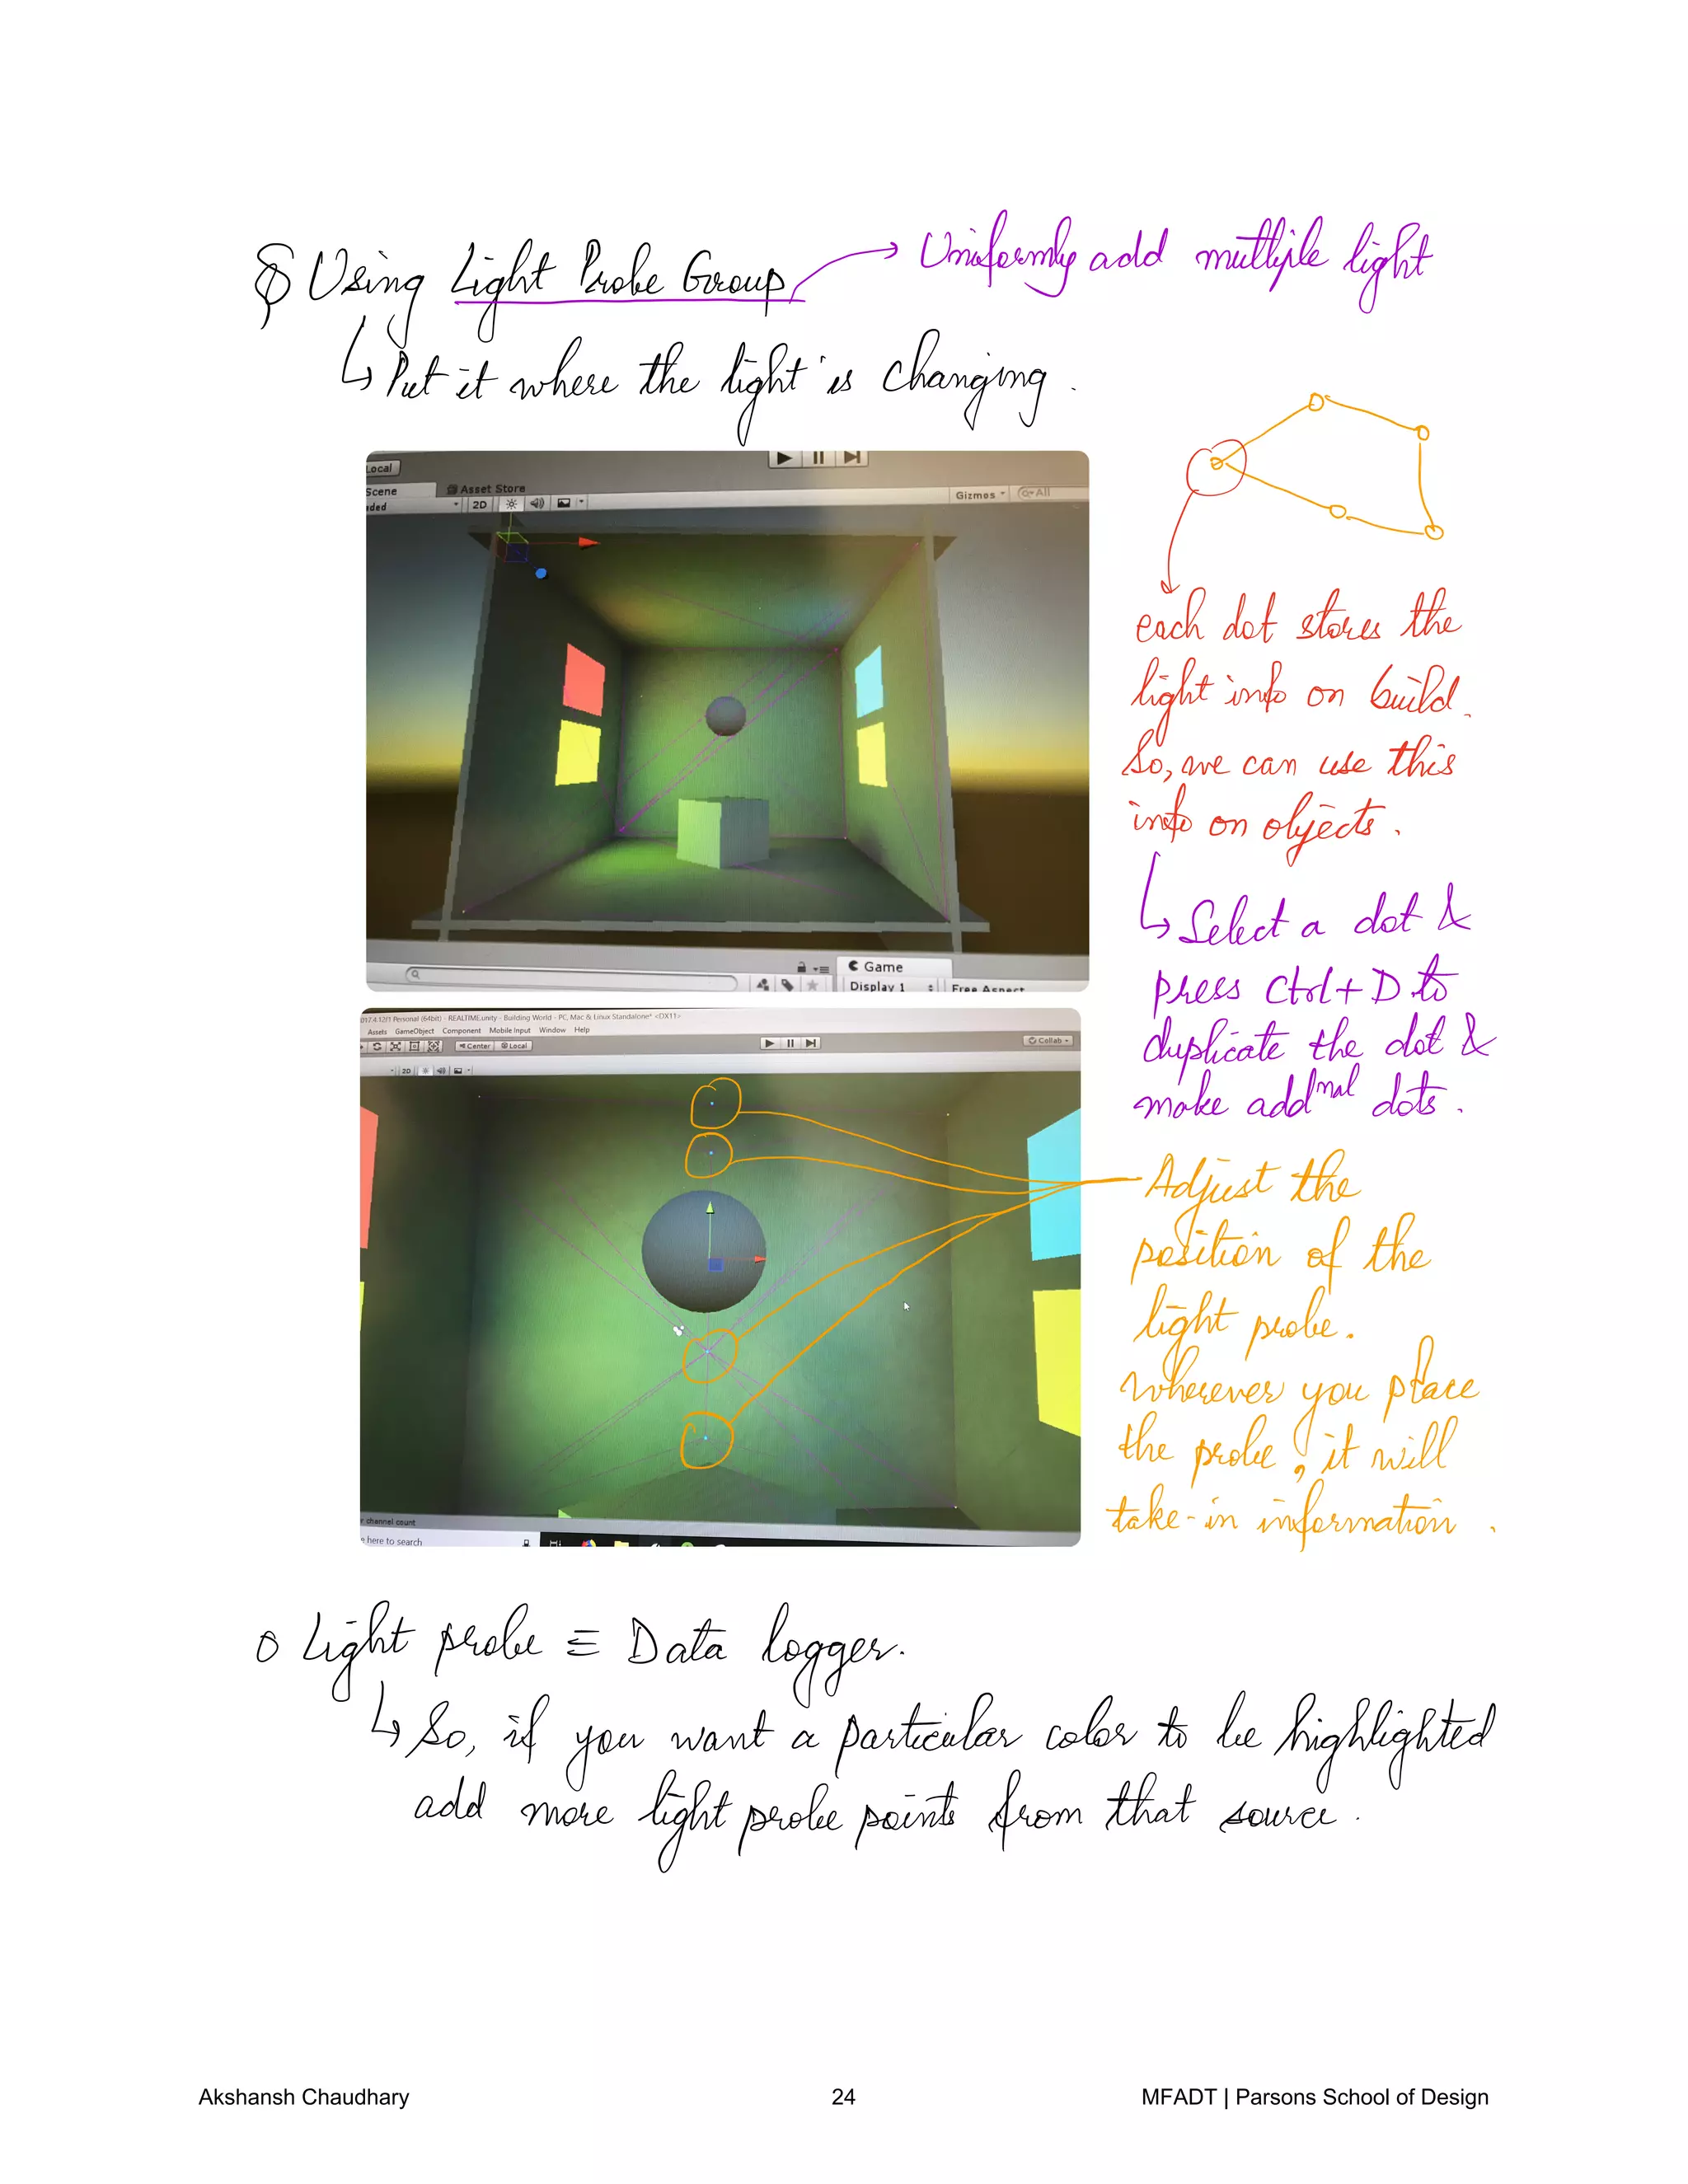 § Using Light Probe Group → Uniformly add multiple light
↳ Put it where the light is changing.
Local
Scene
Asset Store
aded
2D
Gizmos
All
each dot stores the
light info on build.
So, we can use this
info on objects.
↳ Select a dot &
press Ctrl+D to
duplicate the dot &
make addnal dots.
Game
Display 1
Free Aspect
017.4.12f1 Personal (64bit) - REALTIME.unity - Building World - PC, Mac & Linux Standalone* <DX11>
Assets GameObject Component Mobile Input Window Help
Center Local
Collab
2D
Adjust the
position of the
light probe.
Wherever you place
the probe, it will
take-in information.
r channel count
e here to search
o Light probe ≡ Data logger.
↳ So, if you want a particular color to be highlighted
add more light probe points from that source.
Akshansh Chaudhary 24 MFADT | Parsons School of Design